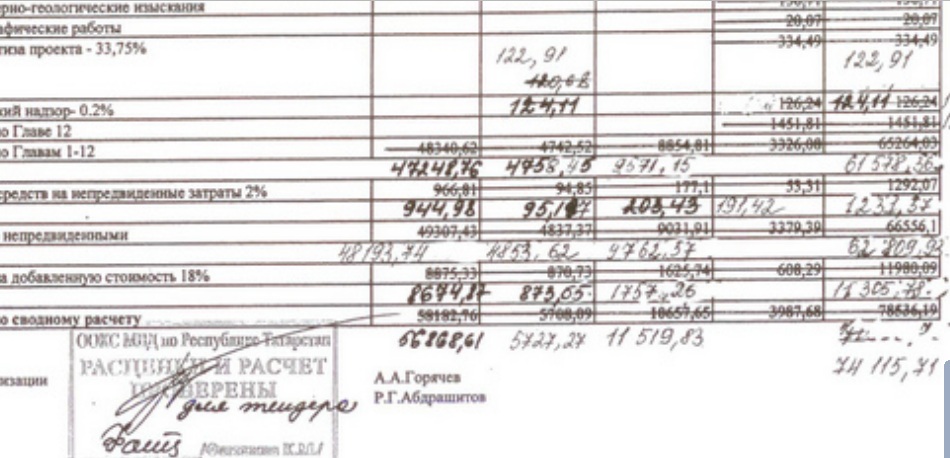 ерно-геологические изыскания
афические работы 20,07 20,07
тиза проекта - 33,75% 334,49 334,49
122,91 122,91
120,68
кий надзор- 0.2% 124,11 126,24 124,11 126,24
о Главе 12 1451,81 1451,81
о Главам 1-12 48340,62 4742,52 8854,81 3326,08 65264,03
47248,76 4758,45 9571,15 61578,36
редств на непредвиденные затраты 2% 966,81 94,85 177,1 53,31 1292,07
944,98 95,17 203,43 191,42 1231,57
непредвиденными 49307,43 4837,37 9031,91 3379,39 66556,1
48193,74 4853,62 9762,57 62809,9
а добавленную стоимость 18% 8875,33 870,73 1625,74 608,29 11980,09
8674,87 873,65 1757,26 11305,78
о сводному расчету 58182,76 5708,09 10657,65 3987,68 78536,19
56868,61 5727,27 11519,83
74115,71
ООКС МВД по Республике Татарстан
РАСЦЕНКИ И РАСЧЕТ
ПРОВЕРЕНЫ
для тендера
изации
А.А.Горячев
Р.Г.Абдрашитов